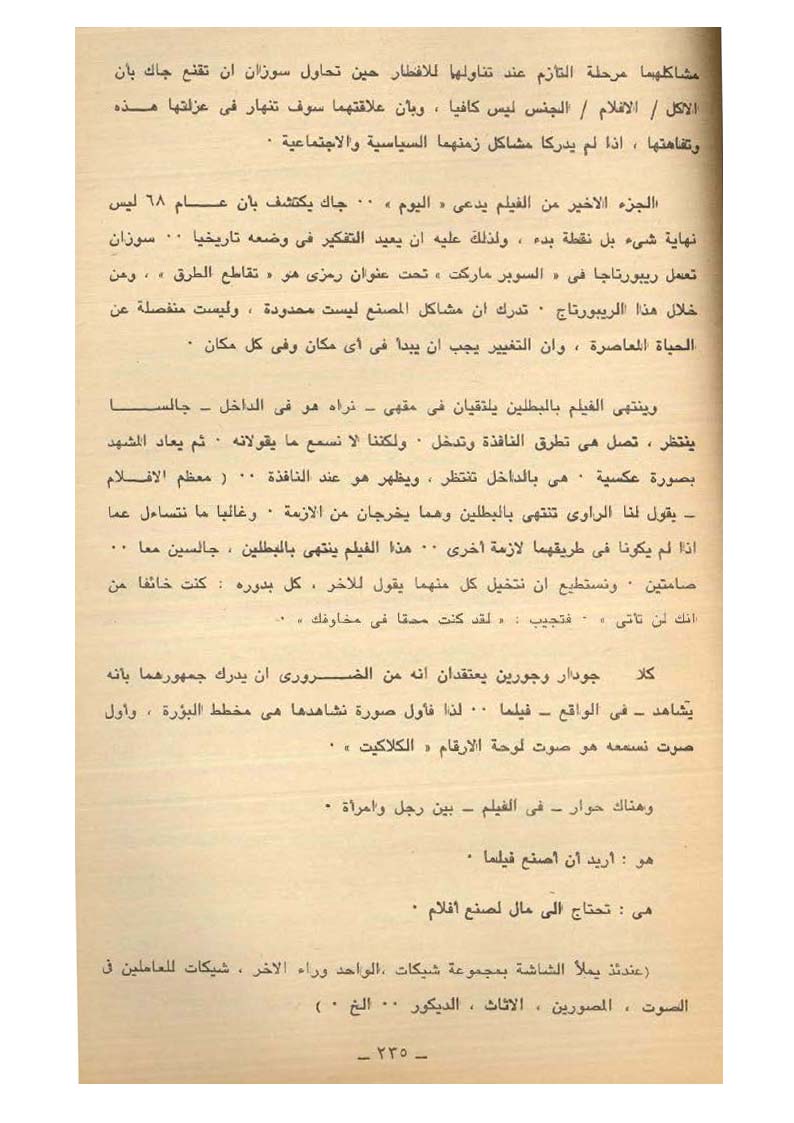 مشاكلهما مرحلة التأزم عند تناولها للافطار حين تحاول سوزان ان تقنع جاك بأن
الاكل / الافلام / الجنس ليس كافيا ، وبأن علاقتهما سوف تنهار فى عزلتها هــذه
وتفاهتها ، اذا لم يدركا مشاكل زمنهما السياسية والاجتماعية ·
الجزء الاخير من الفيلم يدعى « اليوم » ·· جاك يكتشف بأن عـــام ٦٨ ليس
نهاية شىء بل نقطة بدء ، ولذلك عليه ان يعيد التفكير فى وضعه تاريخيا ·· سوزان
تعمل ريبورتاجا فى « السوبر ماركت » تحت عنوان رمزى هو « تقاطع الطرق » ، ومن
خلال هذا الريبورتاج · تدرك ان مشاكل المصنع ليست محدودة ، وليست منفصلة عن
الحياة المعاصرة ، وان التغيير يجب ان يبدأ فى أى مكان وفى كل مكان ·
وينتهى الفيلم بالبطلين يلتقيان فى مقهى ــ نراه هو فى الداخل ــ جالســــا
ينتظر ، تصل هى تطرق النافذة وتدخل · ولكننا لا نسمع ما يقولانه · ثم يعاد المشهد
بصورة عكسية · هى بالداخل تنتظر ، ويظهر هو عند النافذة ·· ( معظم الافــلام
ــ يقول لنا الراوى تنتهى بالبطلين وهما يخرجان من الازمة · وغالبا ما نتساءل عما
اذا لم يكونا فى طريقهما لازمة أخرى ·· هذا الفيلم ينتهى بالبطلين ، جالسين معا ··
صامتين · ونستطيع ان نتخيل كل منهما يقول للاخر ، كل بدوره : كنت خائفا من
انك لن تأتى » · فتجيب : « لقد كنت محقا فى مخاوفك » ·
كلا جودار وجورين يعتقدان انه من الضــــرورى ان يدرك جمهورهما بأنه
يشاهد ــ فى الواقع ــ فيلما ·· لذا فأول صورة نشاهدها هى مخطط البؤرة ، وأول
صوت نسمعه هو صوت لوحة الارقام « الكلاكيت » ·
وهناك حوار ــ فى الفيلم ــ بين رجل وامرأة ·
هو : أريد أن أصنع فيلما ·
هى : تحتاج الى مال لصنع أفلام ·
(عندئذ يملأ الشاشة بمجموعة شيكات ،الواحد وراء الاخر ، شيكات للعاملين فى
الصوت ، المصورين ، الاثاث ، الديكور ·· الخ · )
ــ ٢٣٥ ــ